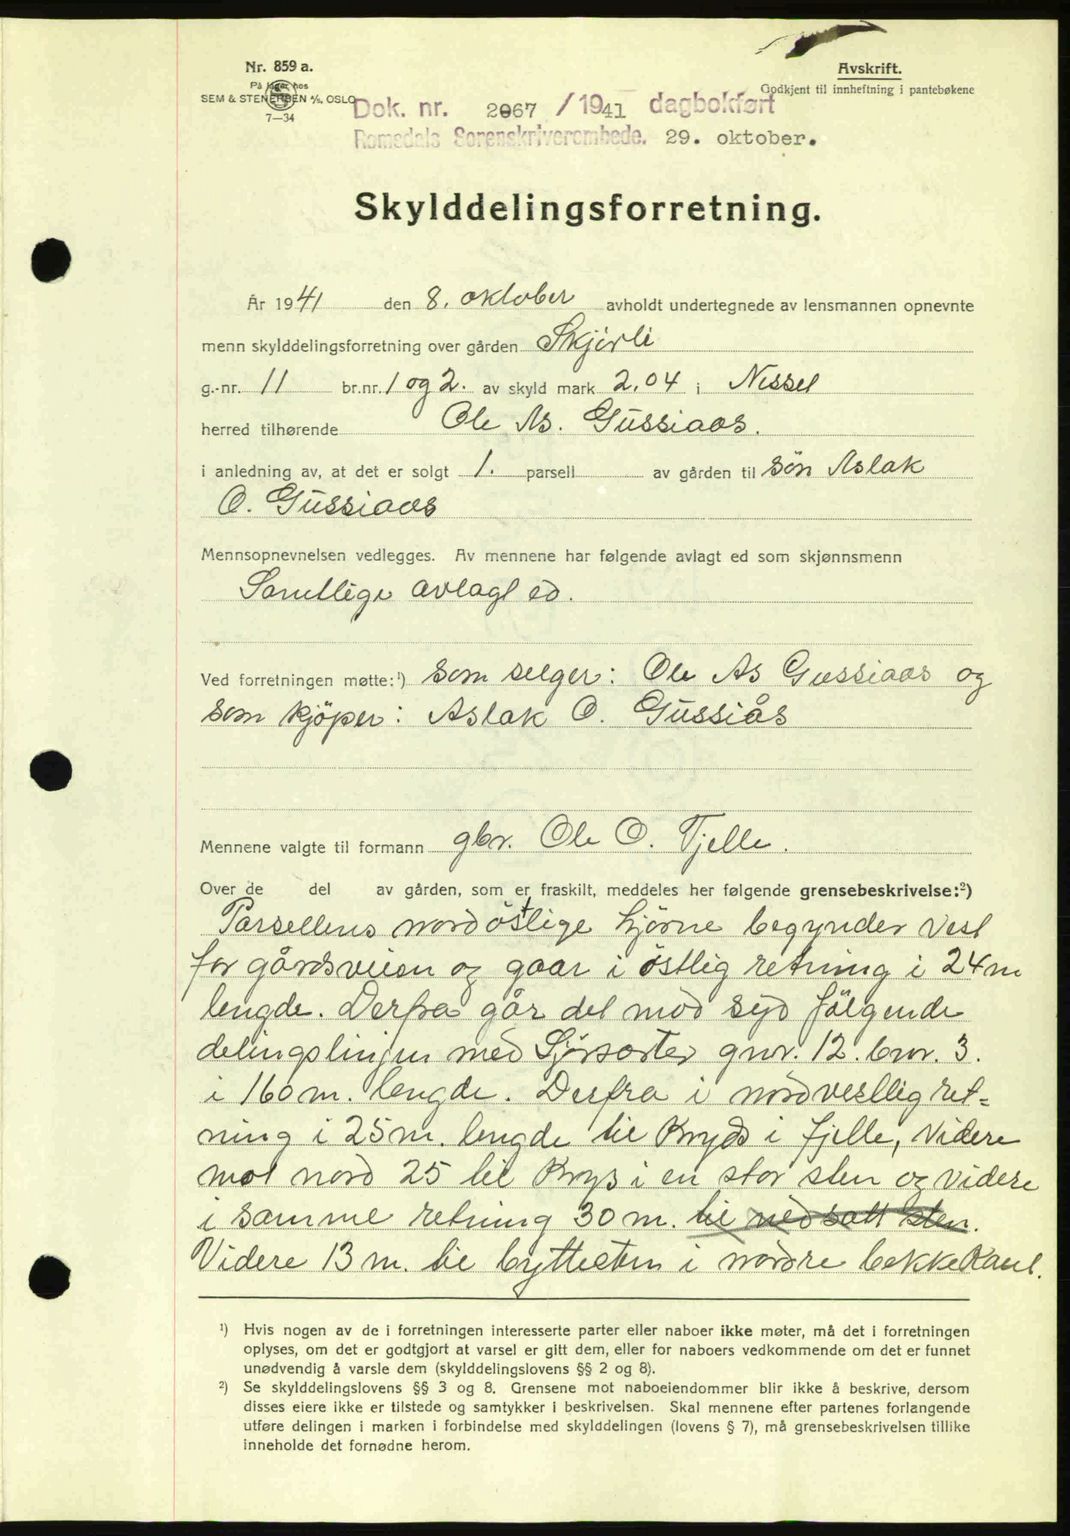 Nr. 859 a.
På lager hos
SEM & STENERSEN A/S, OSLO
7—34
Avskrift.
Godkjent til innheftning i pantebøkene
Dok. nr. 2067 / 1941 dagbokført
Romsdals Sorenskriverembede. 29. oktober.
Skylddelingsforretning.
År 1941 den 8. oktober avholdt undertegnede av lensmannen opnevnte
menn skylddelingsforretning over gården Skjörli
g.-nr. 11 br.nr. 1 og 2. av skyld mark 2,04 i Nesset
herred tilhørende Ole As. Güssiaas.
i anledning av, at det er solgt 1. parsell av gården til sön Aslak
O. Güssiaas
Mennsopnevnelsen vedlegges. Av mennene har følgende avlagt ed som skjønnsmenn
Samtlige avlagt ed.
Ved forretningen møtte:¹) som selger: Ole As Gussiaas og
som kjöper: Aslak O. Güssiås
Mennene valgte til formann gbr. Ole O. Tjelle.
Over de del av gården, som er fraskilt, meddeles her følgende grensebeskrivelse:²)
Parsellens nordöstlige hjörne begynder vest
for gårdsveien og gaar i östlig retning i 24 m
lengde. Derfra går det mod syd fölgende
delingslinjen med gnr. 12. bnr. 3.
i 160 m. lengde. Derfra i nordvestlig ret=
ning i 25 m. lengde til Kryds i fjelle, Videre
mot nord 25 til Krys i en stor sten og videre
i samme retning 30 m. til nedsatt sten.
Videre 13 m. til byttesten i nordre bekkekant.
¹) Hvis nogen av de i forretningen interesserte parter eller naboer ikke møter, må det i forretningen
oplyses, om det er godtgjort at varsel er gitt dem, eller for naboers vedkommende om det er funnet
unødvendig å varsle dem (skylddelingslovens §§ 2 og 8).
²) Se skylddelingslovens §§ 3 og 8. Grensene mot naboeiendommer blir ikke å beskrive, dersom
disses eiere ikke er tilstede og samtykker i beskrivelsen. Skal mennene efter partenes forlangende
utføre delingen i marken i forbindelse med skylddelingen (lovens § 7), må grensebeskrivelsen tillike
inneholde det fornødne herom.